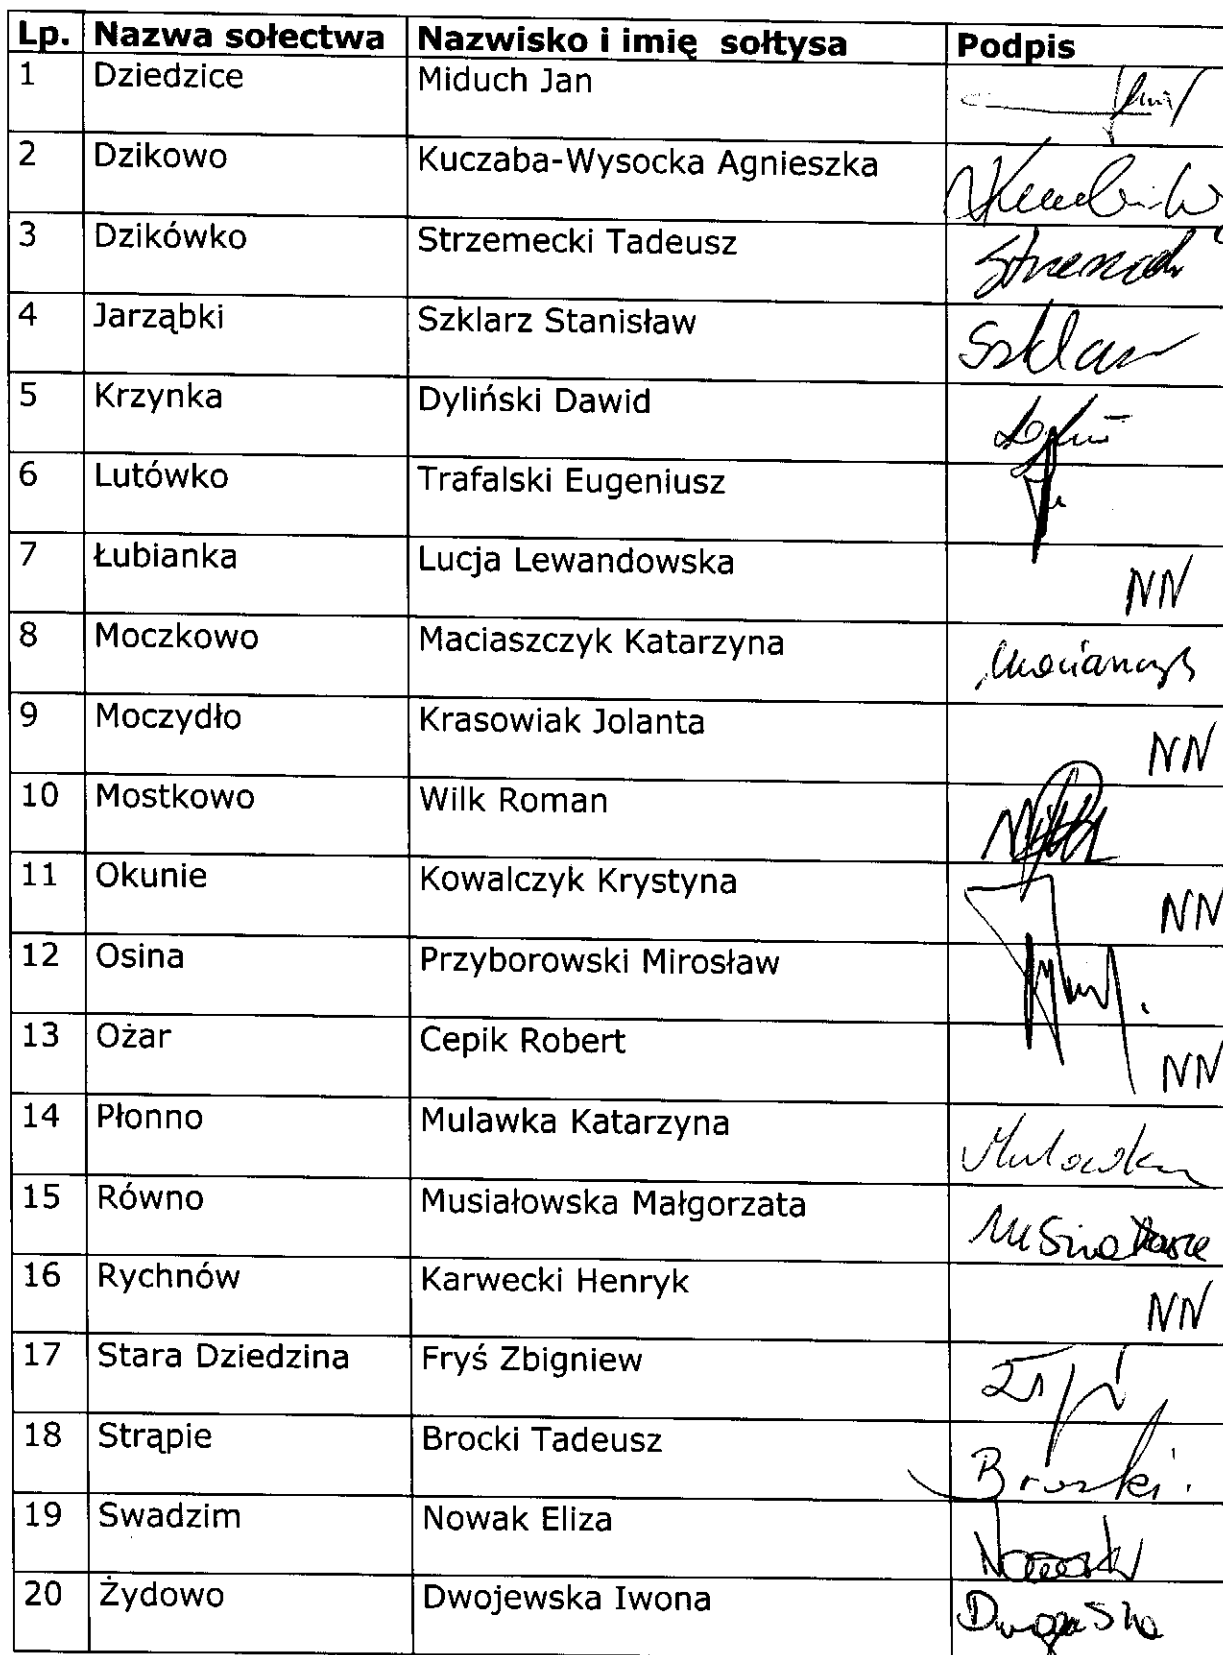 Lp. Nazwa sołectwa Nazwisko i imię sołtysa Podpis
1 Dziedzice Miduch Jan
2 Dzikowo Kuczaba-Wysocka Agnieszka
3 Dzikówko Strzemecki Tadeusz
4 Jarząbki Szklarz Stanisław Szklarz
5 Krzynka Dyliński Dawid
6 Lutówko Trafalski Eugeniusz
7 Łubianka Lucja Lewandowska NN
8 Moczkowo Maciaszczyk Katarzyna
9 Moczydło Krasowiak Jolanta NN
10 Mostkowo Wilk Roman
11 Okunie Kowalczyk Krystyna NN
12 Osina Przyborowski Mirosław
13 Ożar Cepik Robert NN
14 Płonno Mulawka Katarzyna Mulawka
15 Równo Musiałowska Małgorzata
16 Rychnów Karwecki Henryk NN
17 Stara Dziedzina Fryś Zbigniew
18 Strąpie Brocki Tadeusz Brocki
19 Swadzim Nowak Eliza
20 Żydowo Dwojewska Iwona